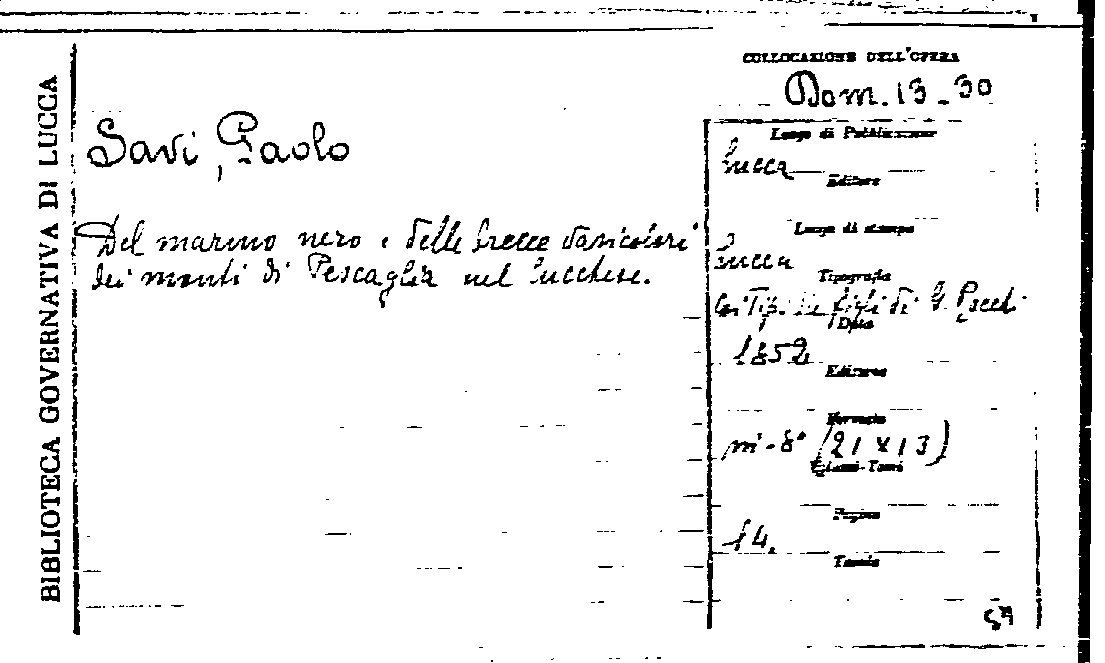 BIBLIOTECA GOVERNATIVA DI LUCCA
Savi, Paolo
Del marmo nero e delle brecce varicolori
dei monti di Pescaglia nel lucchese.
COLLOCAZIONE DELL'OPERA
Dom. 13-30
Luogo di Pubblicazione
Lucca
Editore
Luogo di stampa
Lucca
Tipografia
coi Tip. dei figli di G. Rocchi
Data
1852
Edizione
Formato
in-8° (21 x 13)
Volumi-Tomi
Pagine
14.
Tavole